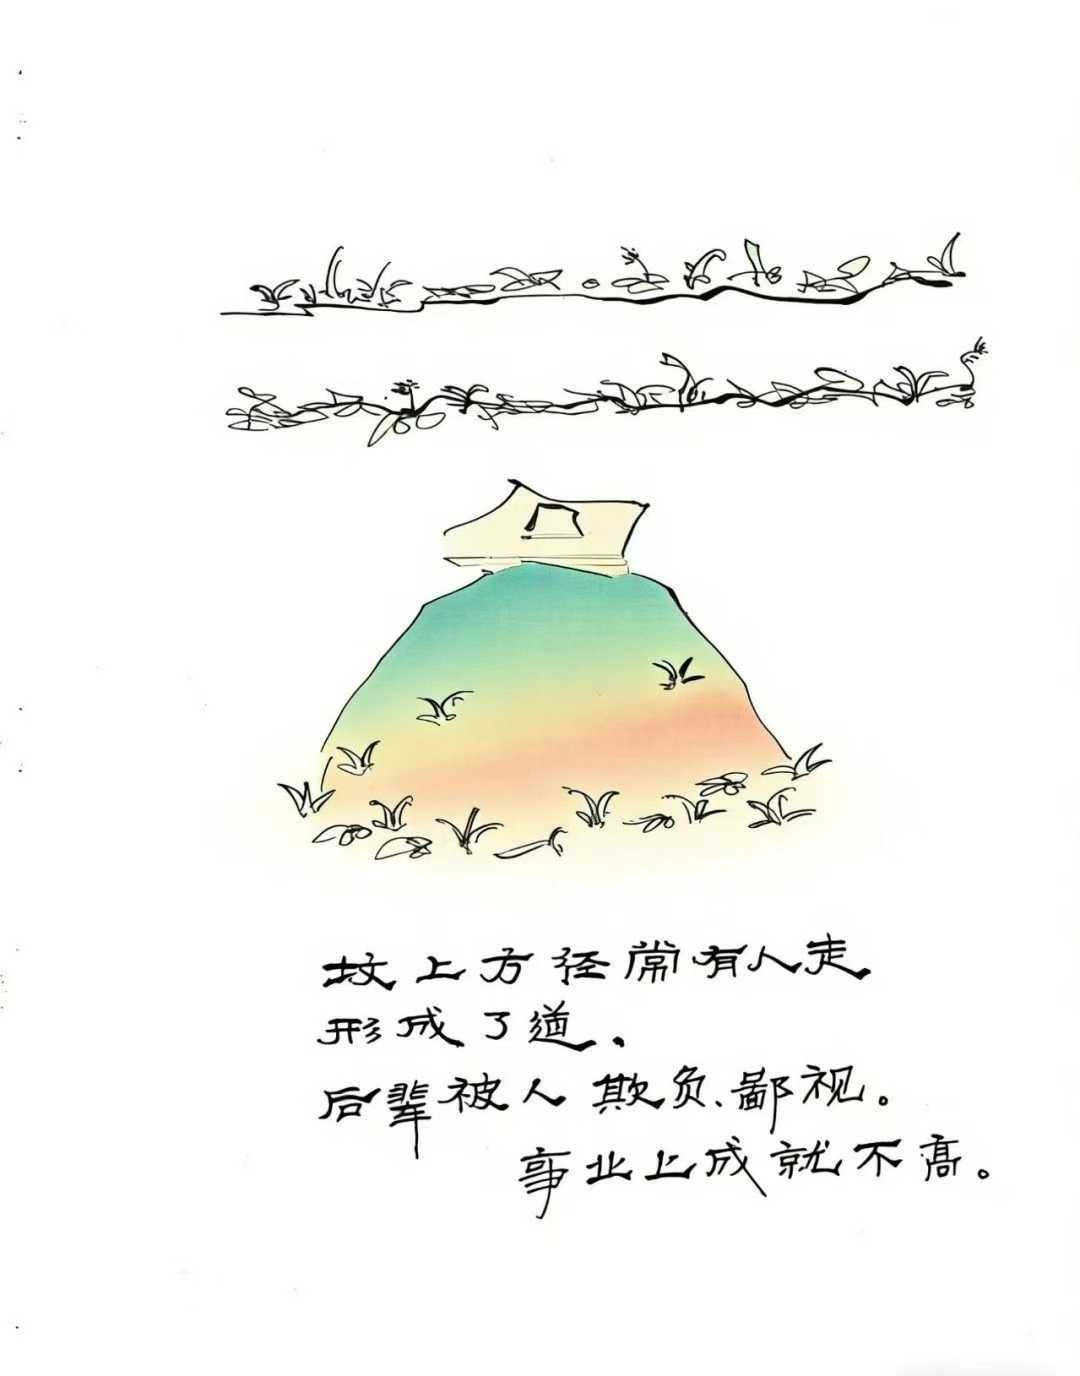 坟上方径常有人走
形成了道、
后辈被人欺负、鄙视。
事业上成就不高。